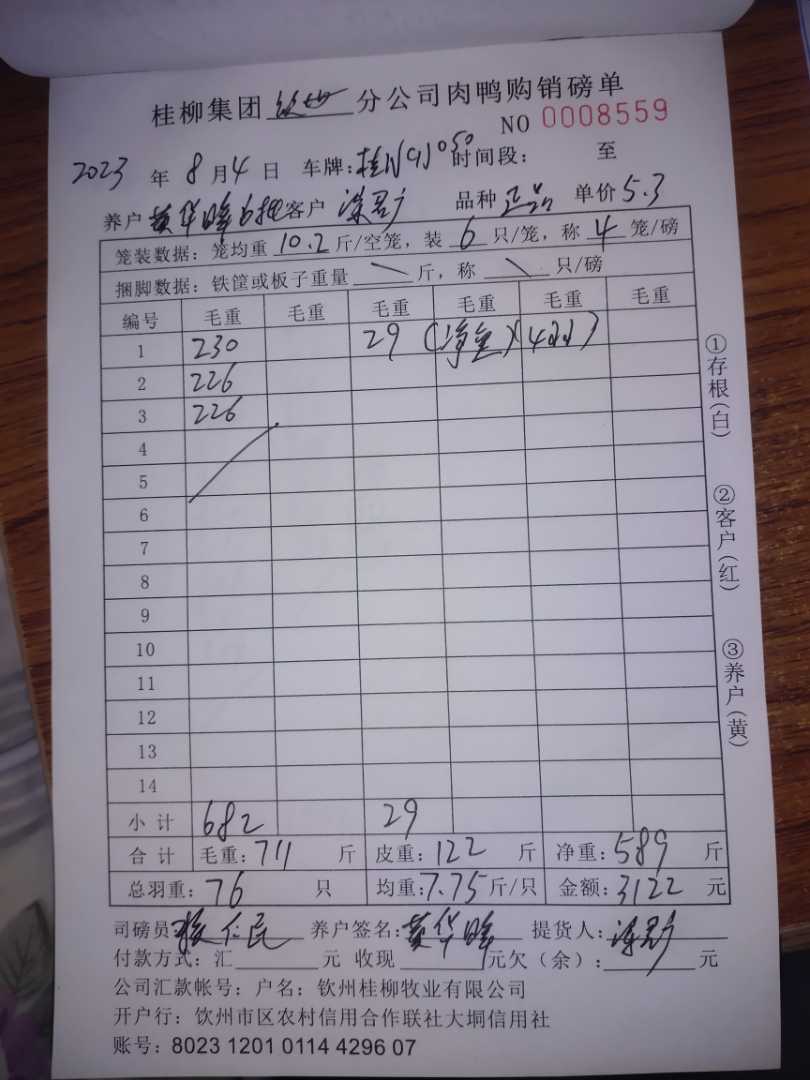 桂柳集团 钦州 分公司肉鸭购销磅单
NO 0008559
2023 年 8 月 4 日 车牌:桂N 时间段: 至
养户 黄华峰 客户 品种 正品 单价 5.3
笼装数据: 笼均重 10.2 斤/空笼, 装 6 只/笼, 称 4 笼/磅
捆脚数据: 铁筐或板子重量 \ 斤, 称 \ 只/磅
编号 毛重 毛重 毛重 毛重 毛重 毛重
1 230 29 (净重)(4只)
2 226
3 226
4
5
6
7
8
9
10
11
12
13
14
小计 682 29
合计 毛重: 711 斤 皮重: 122 斤 净重: 589 斤
总羽重: 76 只 均重: 7.75 斤/只 金额: 3122 元
司磅员 养户签名: 黄华峰 提货人:
付款方式: 汇 元 收现 元欠(余): 元
公司汇款帐号: 户名: 钦州桂柳牧业有限公司
开户行: 钦州市区农村信用合作联社大垌信用社
账号: 8023 1201 0114 4296 07
①存根(白)
②客户(红)
③养户(黄)